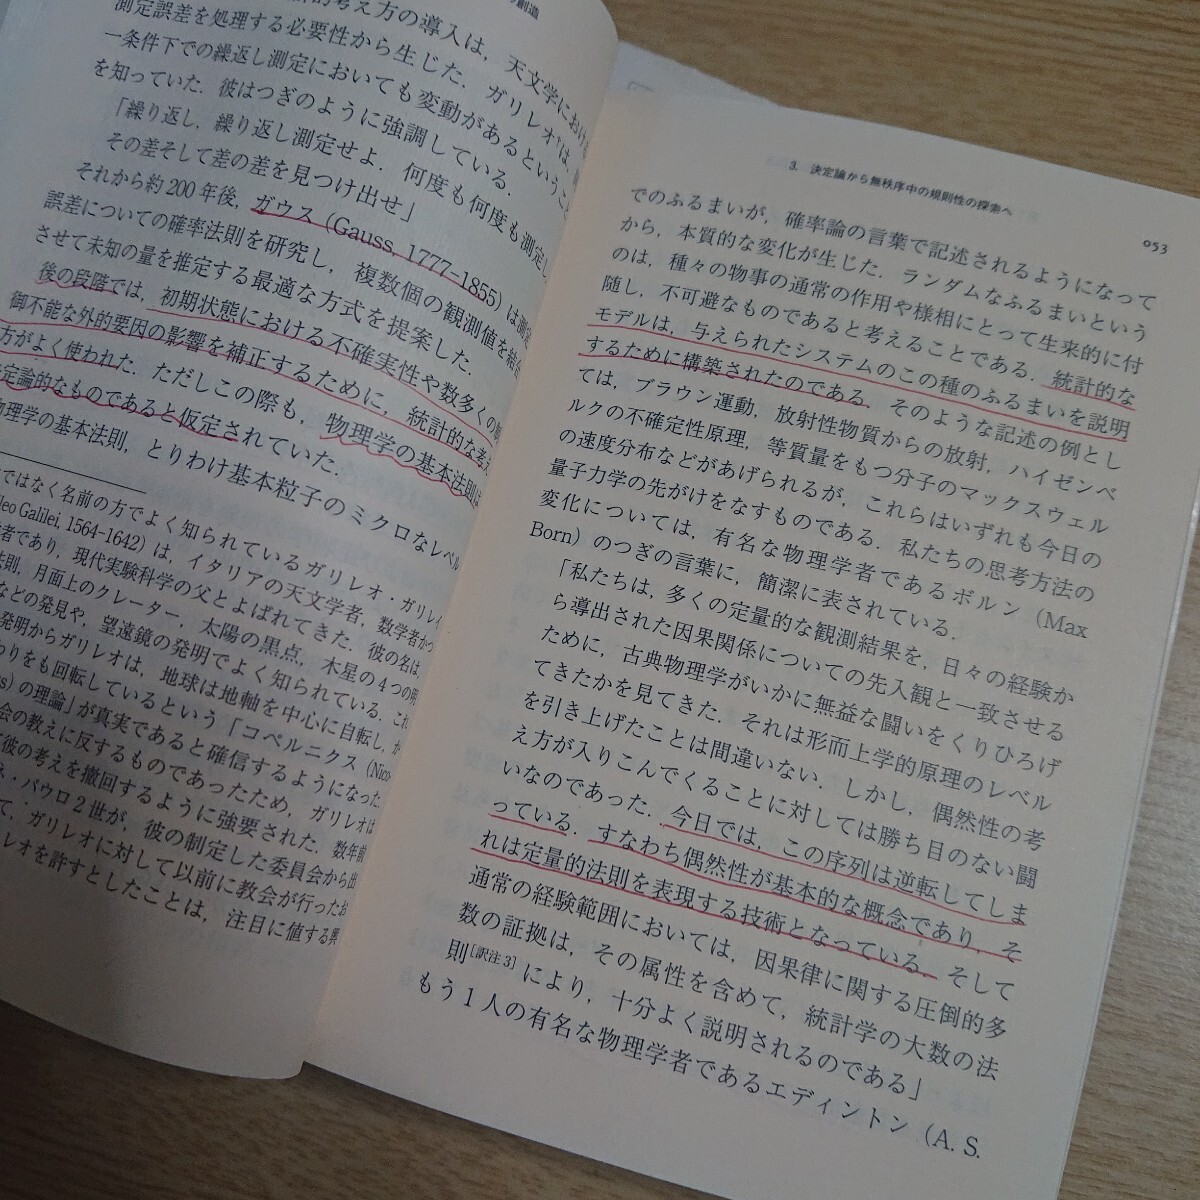 の創造
的考え方の導入は，天文学におけ
測定誤差を処理する必要性から生じた．ガリレオ*は，
一条件下での繰返し測定においても変動があるという
を知っていた．彼はつぎのように強調している．
「繰り返し，繰り返し測定せよ．何度も何度も測定し
その差そして差の差を見つけ出せ」
それから約200年後，ガウス（Gauss, 1777–1855）は測定
誤差についての確率法則を研究し，複数個の観測値を結
させて未知の量を推定する最適な方式を提案した．
後の段階では，初期状態における不確実性や数多くの
御不能な外的要因の影響を補正するために，統計的な考え
方がよく使われた．ただしこの際も，物理学の基本法則は
定論的なものであると仮定されていた．
物理学の基本法則，とりわけ基本粒子のミクロなレベル
ではなく名前の方でよく知られているガリレオ・ガリレイ
leo Galilei, 1564-1642）は，イタリアの天文学者，数学者かつ
者であり，現代実験科学の父とよばれてきた．彼の名は，
法則，月面上のクレーター，太陽の黒点，木星の4つの
などの発見や，望遠鏡の発明でよく知られている．これ
発明からガリレオは，地球は地軸を中心に自転し，か
わりをも回転しているという「コペルニクス（Nico-
us）の理論」が真実であると確信するようになった
会の教えに反するものであったため，ガリレオは
彼の考えを撤回するように強要された．数年前
ネ・パウロ2世が，彼の制定した委員会から出
て，ガリレオに対して以前に教会が行ったお
レオを許すとしたことは，注目に値する
3．決定論から無秩序中の規則性の探索へ
053
でのふるまいが，確率論の言葉で記述されるようになって
から，本質的な変化が生じた．ランダムなふるまいという
のは，種々の物事の通常の作用や様相にとって生来的に付
随し，不可避なものであると考えることである．統計的な
モデルは，与えられたシステムのこの種のふるまいを説明
するために構築されたのである．そのような記述の例とし
ては，ブラウン運動，放射性物質からの放射，ハイゼンベ
ルクの不確定性原理，等質量をもつ分子のマックスウェル
の速度分布などがあげられるが，これらはいずれも今日の
量子力学の先がけをなすものである．私たちの思考方法の
変化については，有名な物理学者であるボルン（Max
Born）のつぎの言葉に，簡潔に表されている．
「私たちは，多くの定量的な観測結果を，日々の経験か
ら導出された因果関係についての先入観と一致させる
ために，古典物理学がいかに無益な闘いをくりひろげ
てきたかを見てきた．それは形而上学的原理のレベル
を引き上げたことは間違いない．しかし，偶然性の考
え方が入りこんでくることに対しては勝ち目のない闘
いなのであった．今日では，この序列は逆転してしま
っている．すなわち偶然性が基本的な概念であり，そ
れは定量的法則を表現する技術となっている．そして
通常の経験範囲においては，因果律に関する圧倒的多
数の証拠は，その属性を含めて，統計学の大数の法
則［訳注3］により，十分よく説明されるのである」
もう1人の有名な物理学者であるエディントン（A. S.